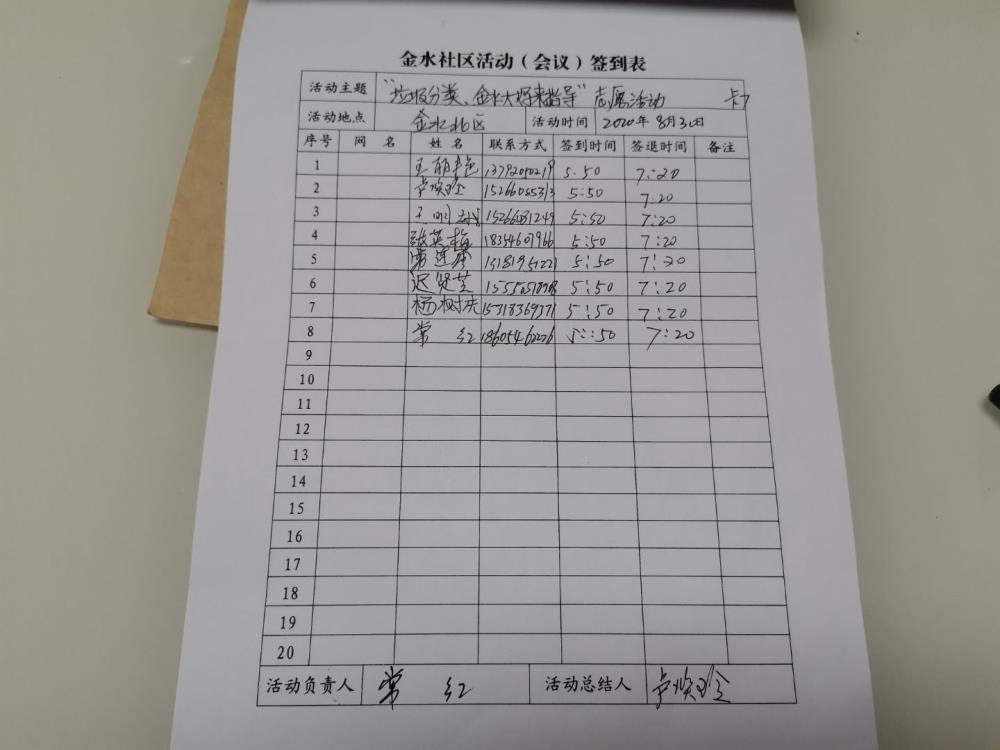 金水社区活动（会议）签到表
活动主题 “垃圾分类、金水大妈来指导”志愿活动
活动地点 金水北区 活动时间 2020年8月30日
序号 网 名 姓 名 联系方式 签到时间 签退时间 备注
1 王丽艳 13792010219 5:50 7:20
2 卢焕玲 15266055313 5:50 7:20
3 15266081249 5:50 7:20
4 张英梅 18354607966 5:50 7:20
5 5:50 7:20
6 迟贤芝 5:50 7:20
7 杨树庆 15318369371 5:50 7:20
8 常 红 18605462226 5:50 7:20
9
10
11
12
13
14
15
16
17
18
19
20
活动负责人 常 红 活动总结人 卢焕玲